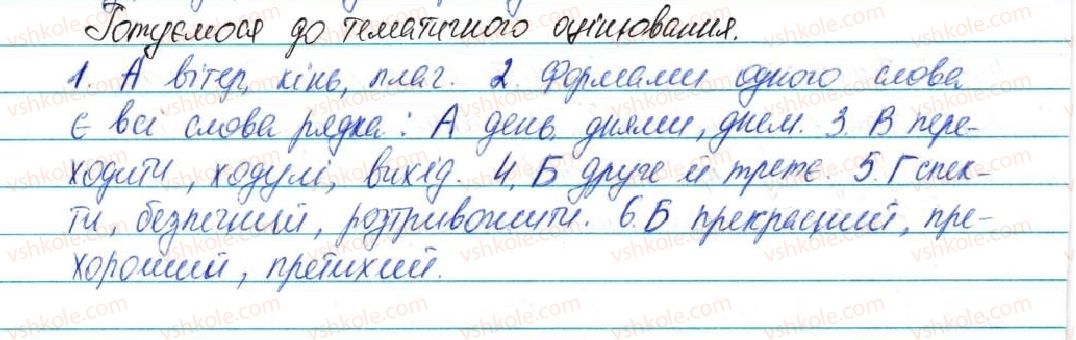 Готуємося до тематичного оцінювання.
1. А вітер, кінь, плач. 2. Формами одного слова
є всі слова рядка: А день, днями, днем. 3. В пере-
ходити, ходулі, вихід. 4. Б друге й третє. 5. Г спек-
ти, безпечний, розтривожити. 6. Б прекрасний, пре-
хороший, претихий.